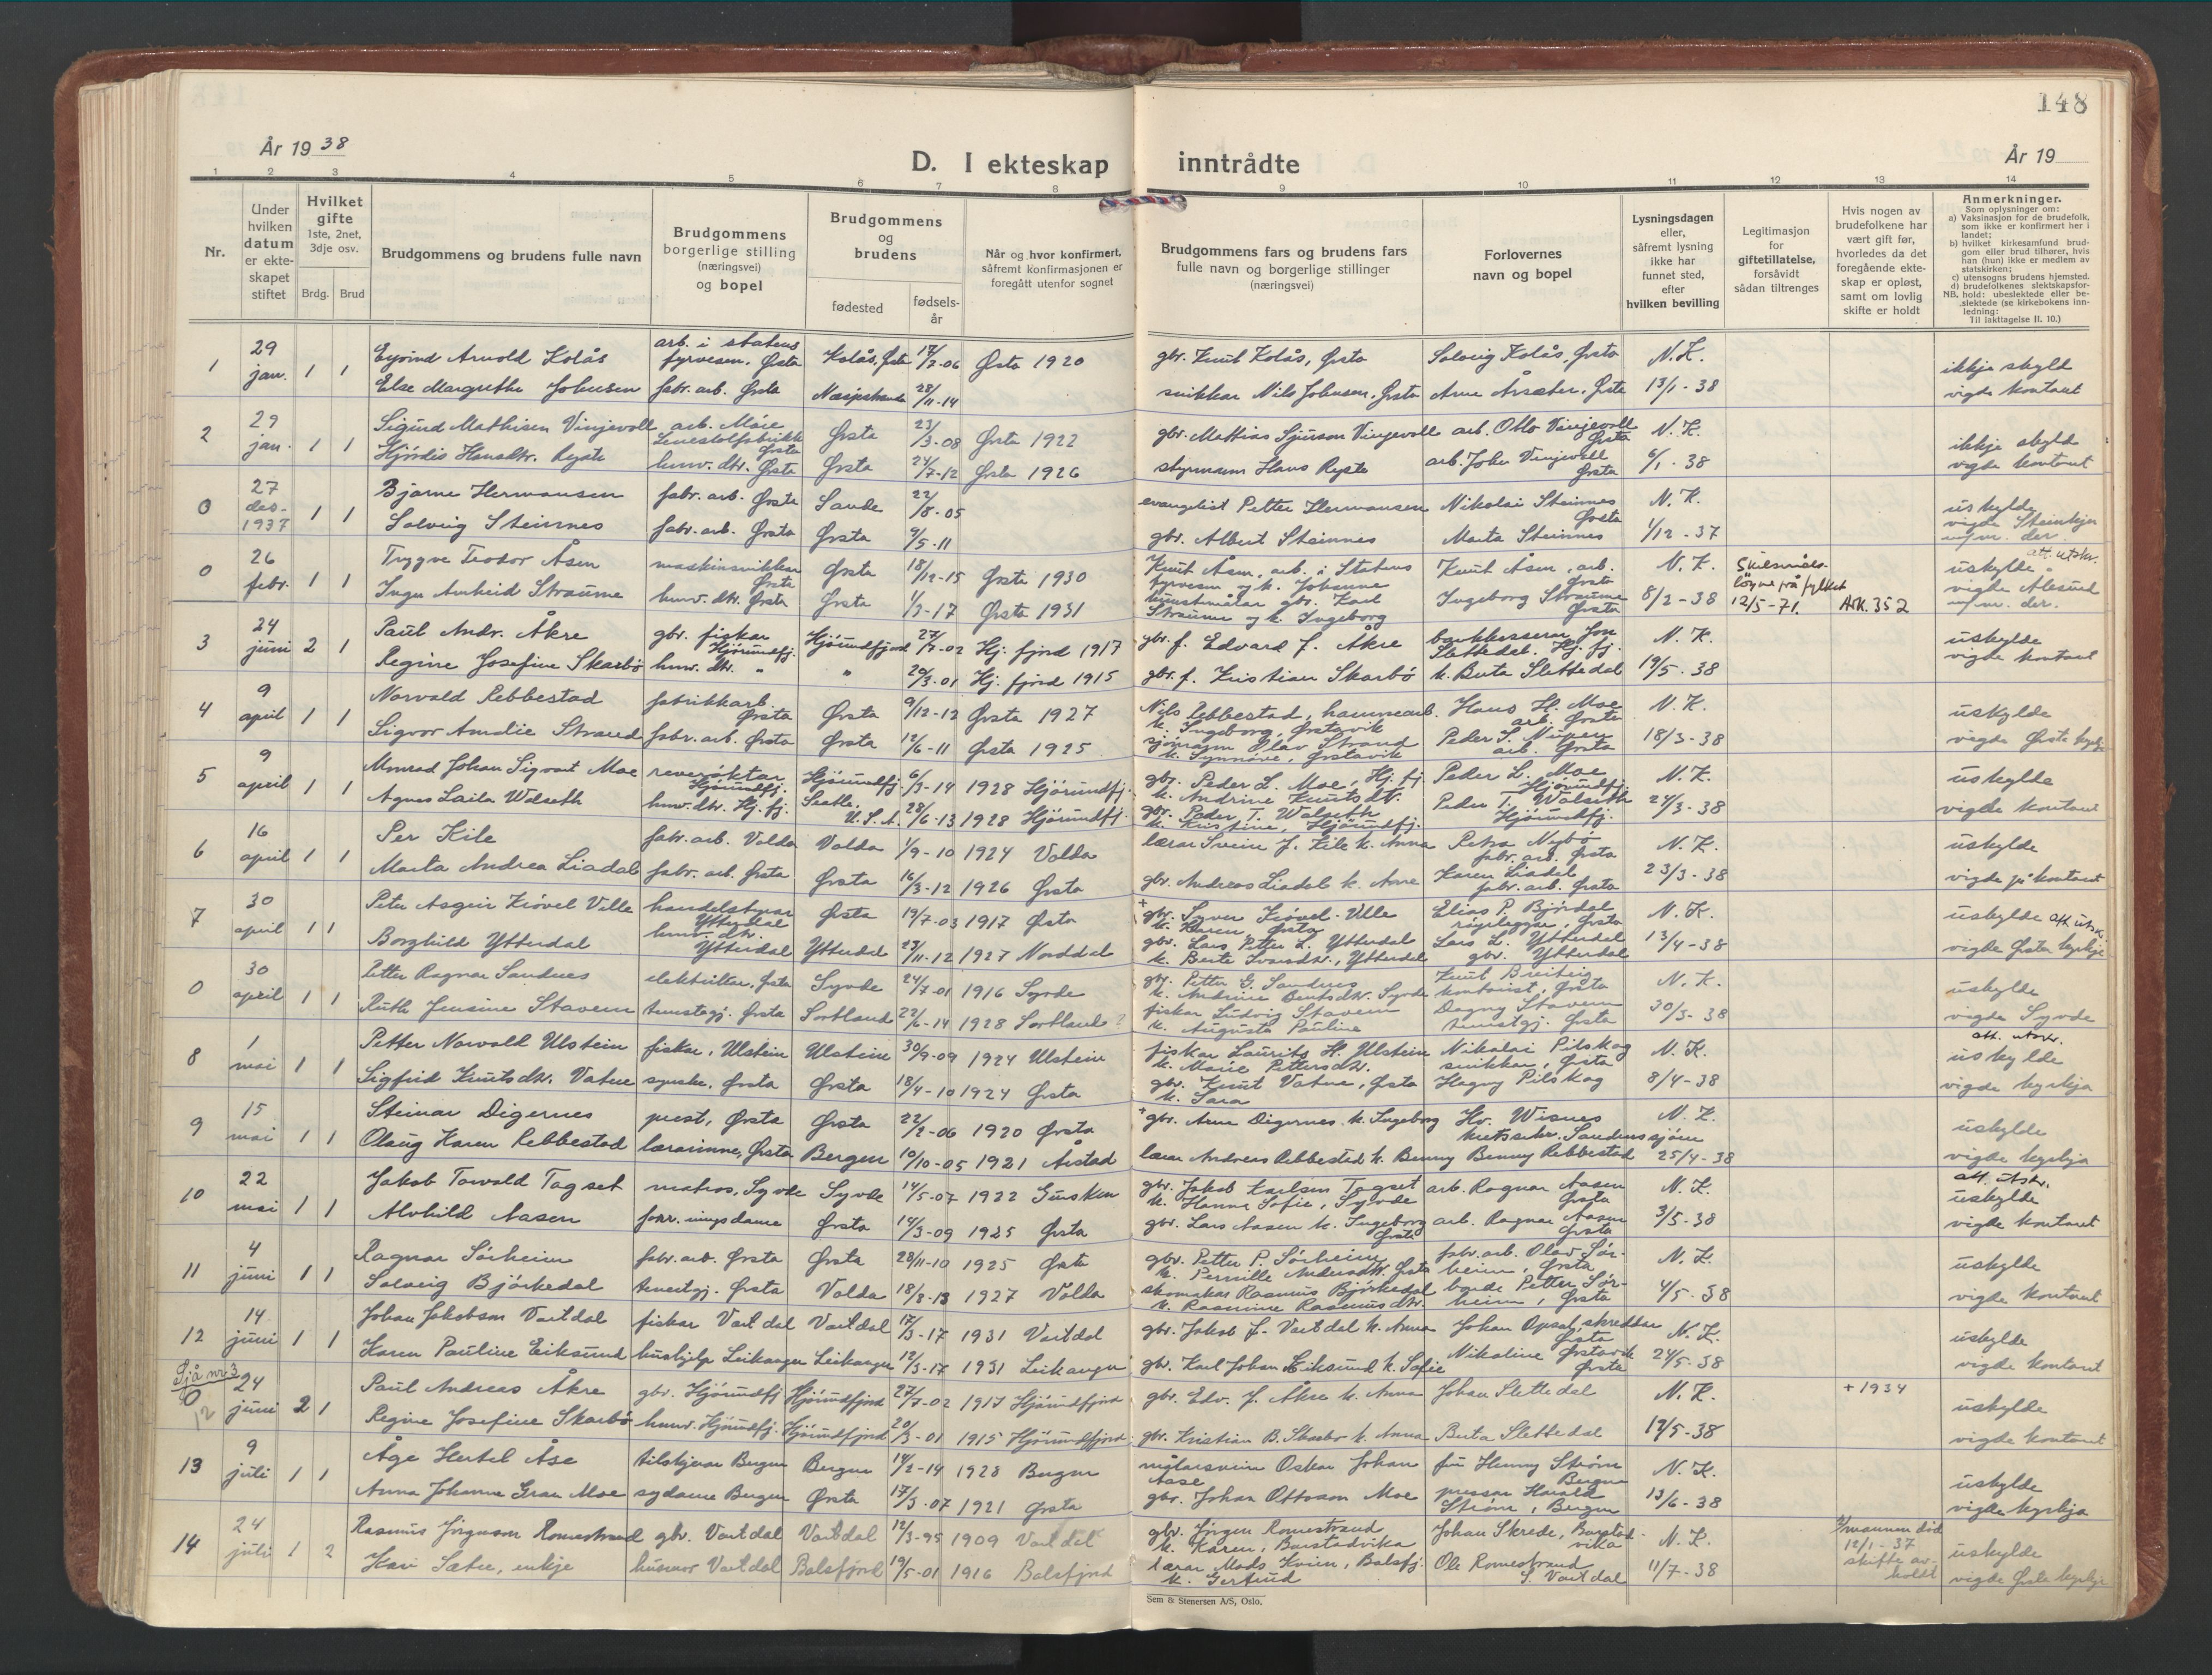 148
År 19 38
D. I ekteskap inntrådte
År 19
1 2 3 4 5 6 7 8 9 10 11 12 13 14
Nr.
Under hvilken datum er ekteskapet stiftet
Hvilket gifte 1ste, 2net, 3dje osv.
Brdg. Brud
Brudgommens og brudens fulle navn
Brudgommens borgerlige stilling (næringsvei) og bopel
Brudgommens og brudens
fødested
fødselsår
Når og hvor konfirmert, såfremt konfirmasjonen er foregått utenfor sognet
Brudgommens fars og brudens fars fulle navn og borgerlige stillinger (næringsvei)
Forlovernes navn og bopel
Lysningsdagen eller, såfremt lysning ikke har funnet sted, efter hvilken bevilling
Legitimasjon for giftetillatelse, forsåvidt sådan tiltrenges
Hvis nogen av brudefolkene har vært gift før, hvorledes da det foregående ekteskap er opløst, samt om lovlig skifte er holdt
Anmerkninger.
Som oplysninger om:
a) Vaksinasjon for de brudefolk, som ikke er konfirmert her i landet;
b) hvilket kirkesamfund brudgom eller brud tilhører, hvis han (hun) ikke er medlem av statskirken;
c) utensogns brudens hjemsted.
d) brudefolkenes slektskapsforhold: ubeslektede eller beslektede (se kirkebokens innledning:
NB. Til iakttagelse II. 10.)
1 29 jan. 1 1 Eyvind Arnold Kolås arb. i statens fyrvesen, Ørsta Kolås, Ørsta 17/7-06 Ørsta 1920 gbr. Knut Kolås, Ørsta Solveig Kolås, Ørsta N.K. ikkje skyld
Else Margrethe Johnsen fabr. arb. Ørsta 28/11-14 snikkar Nils Johnsen, Ørsta Arne Årsæter, Ørsta 13/1-38 vigde kontoret
2 29 jan. 1 1 Sigurd Mathisen Vinjevoll arb. Møre Lenestolfabrikk Ørsta Ørsta 23/3-08 Ørsta 1922 gbr. Mathias Sjurson Vinjevoll arb. Otto Vinjevoll Ørsta N.K. ikkje skyld
Hjørdis Hansdtr. Ryste husv. dtr. Ørsta Ørsta 24/7-12 Ørsta 1926 styrmann Hans Ryste arb. John Vinjevoll Ørsta 6/1-38 vigde kontoret
0 27 des. 1937 1 1 Bjarne Hermansen fabr. arb. Ørsta Sande 22/8-05 evangelist Petter Hermansen Nikolai Steinnes Ørsta N.K. uskylde
Solveig Steinnes fabr. arb. Ørsta Ørsta 9/5-11 gbr. Albert Steinnes Marta Steinnes 1/12-37 vigde Steinkjer m/m. der.
0 26 febr. 1 1 Trygve Teodor Åsen maskinsnikkar Ørsta Ørsta 18/12-15 Ørsta 1930 Knut Åsen, arb. i Statens fyrvesen og k. Johanne Knut Åsen, arb. Ørsta N.K. Skilsmåls-løyve frå fylket 12/5-71. Ark. 352 uskylde att. utskr.
Inga Anheid Straume husv. dtr. Ørsta Ørsta 1/3-17 Ørsta 1931 kunstmålar gbr. Karl Straume og k. Ingeborg Ingeborg Straume Ørsta 8/2-38 vigde Ålesund m/m. der.
3 24 juni 2 1 Paul Andr. Åkre gbr. fiskar Hjörundfj. Hjörundfjord 27/7-02 Hj. fjord 1917 gbr. f. Edvard J. Åkre bankkasserar Jon Slettedal. Hj. fj. N.K. uskylde
Regine Josefine Skarbö husv. dtr. " " 20/3-01 Hj. fjord 1915 gbr. f. Kristian Skarbö k. Berta Slettedal 19/5-38 vigde kontoret
4 9 april 1 1 Norvald Rebbestad fabrikkarb. Ørsta Ørsta 9/12-12 Ørsta 1927 Nils Rebbestad, hamnearb. k. Ingeborg, Ørstavik Hans H. Moe arb. Ørsta N.K. uskylde
Sigvor Amalie Strand fabr. arb. Ørsta Ørsta 12/6-11 Ørsta 1925 sjömann Olav Strand k. Synnöve, Ørstavik Peder S. Nupen arb. Ørsta 18/3-38 vigde Ørsta kyrkje
5 9 april 1 1 Monrad Johan Sigvart Moe reverøktar Hjörundfj. Hjörundfj. 6/3-14 1928 Hjörundfj. gbr. Peder L. Moe, Hj. fj. k. Andrine Knutsdtr. Peder L. Moe Hjörundfj. N.K. uskylde
Agnes Laila Walseth husv. dtr. Hj. fj. Seatle, U.S.A. 28/6-13 1928 Hjörundfj. gbr. Peder T. Walseth k. Kristine, Hjörundfj. Peder T. Walseth Hjörundfj. 24/3-38 vigde kontoret
6 16 april 1 1 Per Kile fabr. arb. Volda Volda 1/9-10 1924 Volda lærar Svein J. Kile k. Anna Petra Nybö fabr. arb. Ørsta N.K. uskylde
Marta Andrea Liadal fabr. arb. Ørsta Ørsta 16/3-12 1926 Ørsta gbr. Andreas Liadal k. Anne Karen Liadal fabr. arb. Ørsta 23/3-38 vigde på kontoret
7 30 april 1 1 Peter Asgeir Krövel Velle handelstyrar Ytterdal Ørsta 19/7-03 1917 Ørsta + gbr. Syver Krövel-Velle k. Karen Ørsta Elias P. Bjørdal røyrleggjar, Ørsta N.K. uskylde att. utskr.
Borghild Ytterdal husv. dtr. Ytterdal Ytterdal 29/11-12 1927 Norddal gbr. Lars Petter L. Ytterdal k. Berte Ivarsdtr., Ytterdal Lars L. Ytterdal gbr. Ytterdal 13/4-38 vigde Ørsta kyrkje
0 30 april 1 1 Petter Ragnar Sandnes elektrikar, Ørsta Syvde 24/7-01 1916 Syvde gbr. Petter G. Sandnes k. Andrine Bentsdtr. Syvde Knut Breiteig kontorist, Ørsta N.K. uskylde
Ruth Jensine Stavem tenestgj. Ørsta Sortland 22/6-14 1928 Sortland? fiskar Ludvig Stavem k. Augusta Pauline Dagny Stavem tenestgj. Ørsta 30/3-38 vigde Syvde
8 1 mai 1 1 Petter Norvald Ulstein fiskar, Ulstein Ulstein 30/9-09 1924 Ulstein fiskar Laurits H. Ulstein k. Marie Pettersdtr. Nikolai Pilskog snikkar, Ørsta N.K. att. utskr. uskylde
Sigfrid Knutsdtr. Vatne syerske, Ørsta Ørsta 18/4-10 1924 Ørsta gbr. Knut Vatne, Ørsta k. Sara Magny Pilskog 8/4-38 vigde kyrkja
9 15 mai 1 1 Steinar Digernes prest, Ørsta Ørsta 22/2-06 1920 Ørsta + gbr. Arne Digernes k. Ingeborg Hr. Wisnes Sandnessjöen N.K. uskylde
Olaug Karen Rebbestad lærarinne, Ørsta Bergen 10/10-05 1921 Årstad lærar Andreas Rebbestad k. Benny Benny Rebbestad 25/4-38 vigde kyrkja
10 22 mai 1 1 Jakob Torvald Tagset matros, Syvde Syvde 14/5-07 1922 Gursken gbr. Jakob Karlsen Tagset k. Hanna Sofie, Syvde arb. Ragnar Aasen Ørsta N.K. att. utskr. uskylde
Alvhild Aasen forr.ningsdame Ørsta 14/3-09 1925 Ørsta gbr. Lars Aasen k. Ingeborg Ørsta arb. Ragnar Aasen Ørsta 3/5-38 vigde kontoret
11 4 juni 1 1 Ragnar Sörheim fabr. arb. Ørsta Ørsta 28/11-10 1925 Ørsta gbr. Petter P. Sørheim k. Pernille Andersdtr. Ørsta fabr. arb. Olav Sør-heim, Ørsta N.K. uskylde
Solveig Björkedal tenestgj. Ørsta Volda 18/3-13 1927 Volda skomakar Rasmus Bjørkedal k. Rasmine Rasmusdtr. bonde Petter Sør-heim, Ørsta 4/5-38 vigde kontoret
12 14 juni 1 1 Johan Jakobson Vartdal fiskar Vartdal Vartdal 17/3-17 1931 Vartdal gbr. Jakob J. Vartdal k. Anna Johan Opsal, skreddar Ørsta N.K. uskylde
Karen Pauline Eiksund hushjelp Leikanger Leikanger 12/3-17 1931 Leikanger gbr. Karl Johan Eiksund k. Sofie Nikoline Ørstavik Ørsta 24/5-38 vigde kontoret
Sjå nr. 3
0 12 24 juni 2 1 Paul Andreas Åkre gbr. Hjörundfj. Hjörundfjord 27/7-02 1917 Hjörundfjord gbr. Edv. J. Åkre k. Anna Johan Slettedal N.K. + 1934 uskylde
Regine Josefine Skarbö husv. Hjörundfj. Hjörundfjord 20/3-01 1915 Hjörundfjord gbr. Kristian B. Skarbö k. Anna Berta Slettedal 19/5-38 vigde kontoret
13 9 juli 1 1 Åge Hertel Åse tilskjerar Bergen Bergen 14/2-14 1928 Bergen målarsvein Oskar Johan Aase fru Henny Ström Bergen N.K. uskylde
Anna Johanne Grau Moe sydame Bergen Ørsta 17/3-07 1921 Ørsta gbr. Johan Ottoson Moe pressar Harald Ström, Bergen 13/6-38 vigde kyrkja
14 24 juli 1 2 Rasmus Jørgenson Romestrand gbr. Vartdal Vartdal 12/3-95 1909 Vartdal gbr. Jörgen Romestrand k. Karen, Barstadvika Johan Skrede, Barstad-vika N.K. mannen död 12/1-37 skifte av-holdt uskylde
Kari Sætre, enkje husmor Vartdal Balsfjord 19/5-01 1916 Balsfjord lærar Mads Kvien, Balsfj. k. Gertrud Ole Romestrand S. Vartdal 11/7-38 vigde Ørsta kyrkje
Sem & Stenersen A/S, Oslo.